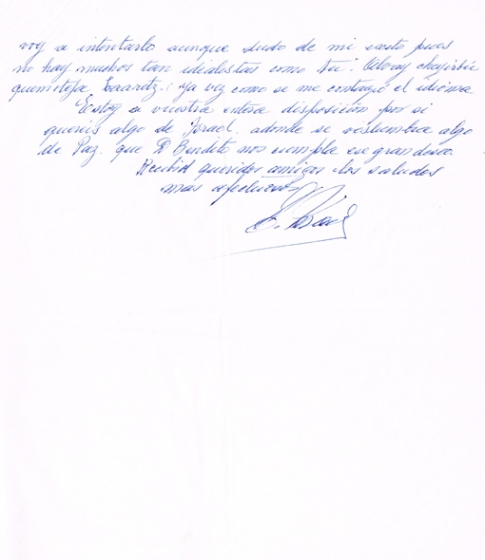 voy a intentarlo aunque dudo de mi exito pues
no hay muchos tan idealistas como tu:
ya vez como se me contagió el idioma
Estoy a vuestra entera disposición por si
quereis algo de Israel. adonde se vislumbra algo
de Paz. que D. Bendito nos cumpla ese gran deseo.
Recibid queridos amigos los saludos
mas afectuosos